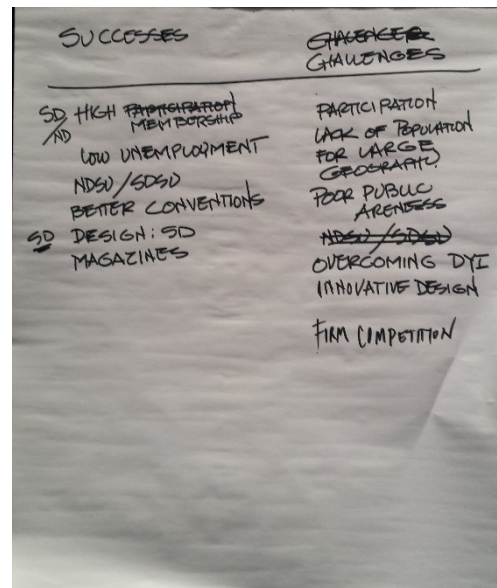 SUCCESSES
SD/ND HIGH PARTICIPATION
MEMBERSHIP
LOW UNEMPLOYMENT
NDSU/SDSU
BETTER CONVENTIONS
SD DESIGN: SD
MAGAZINES
CHALLENGES
PARTICIPATION
LACK OF POPULATION
FOR LARGE
GEOGRAPHY.
POOR PUBLIC
ARENESS
NDSU/SDSU
OVERCOMING DYI
INNOVATIVE DESIGN
FIRM COMPETITION